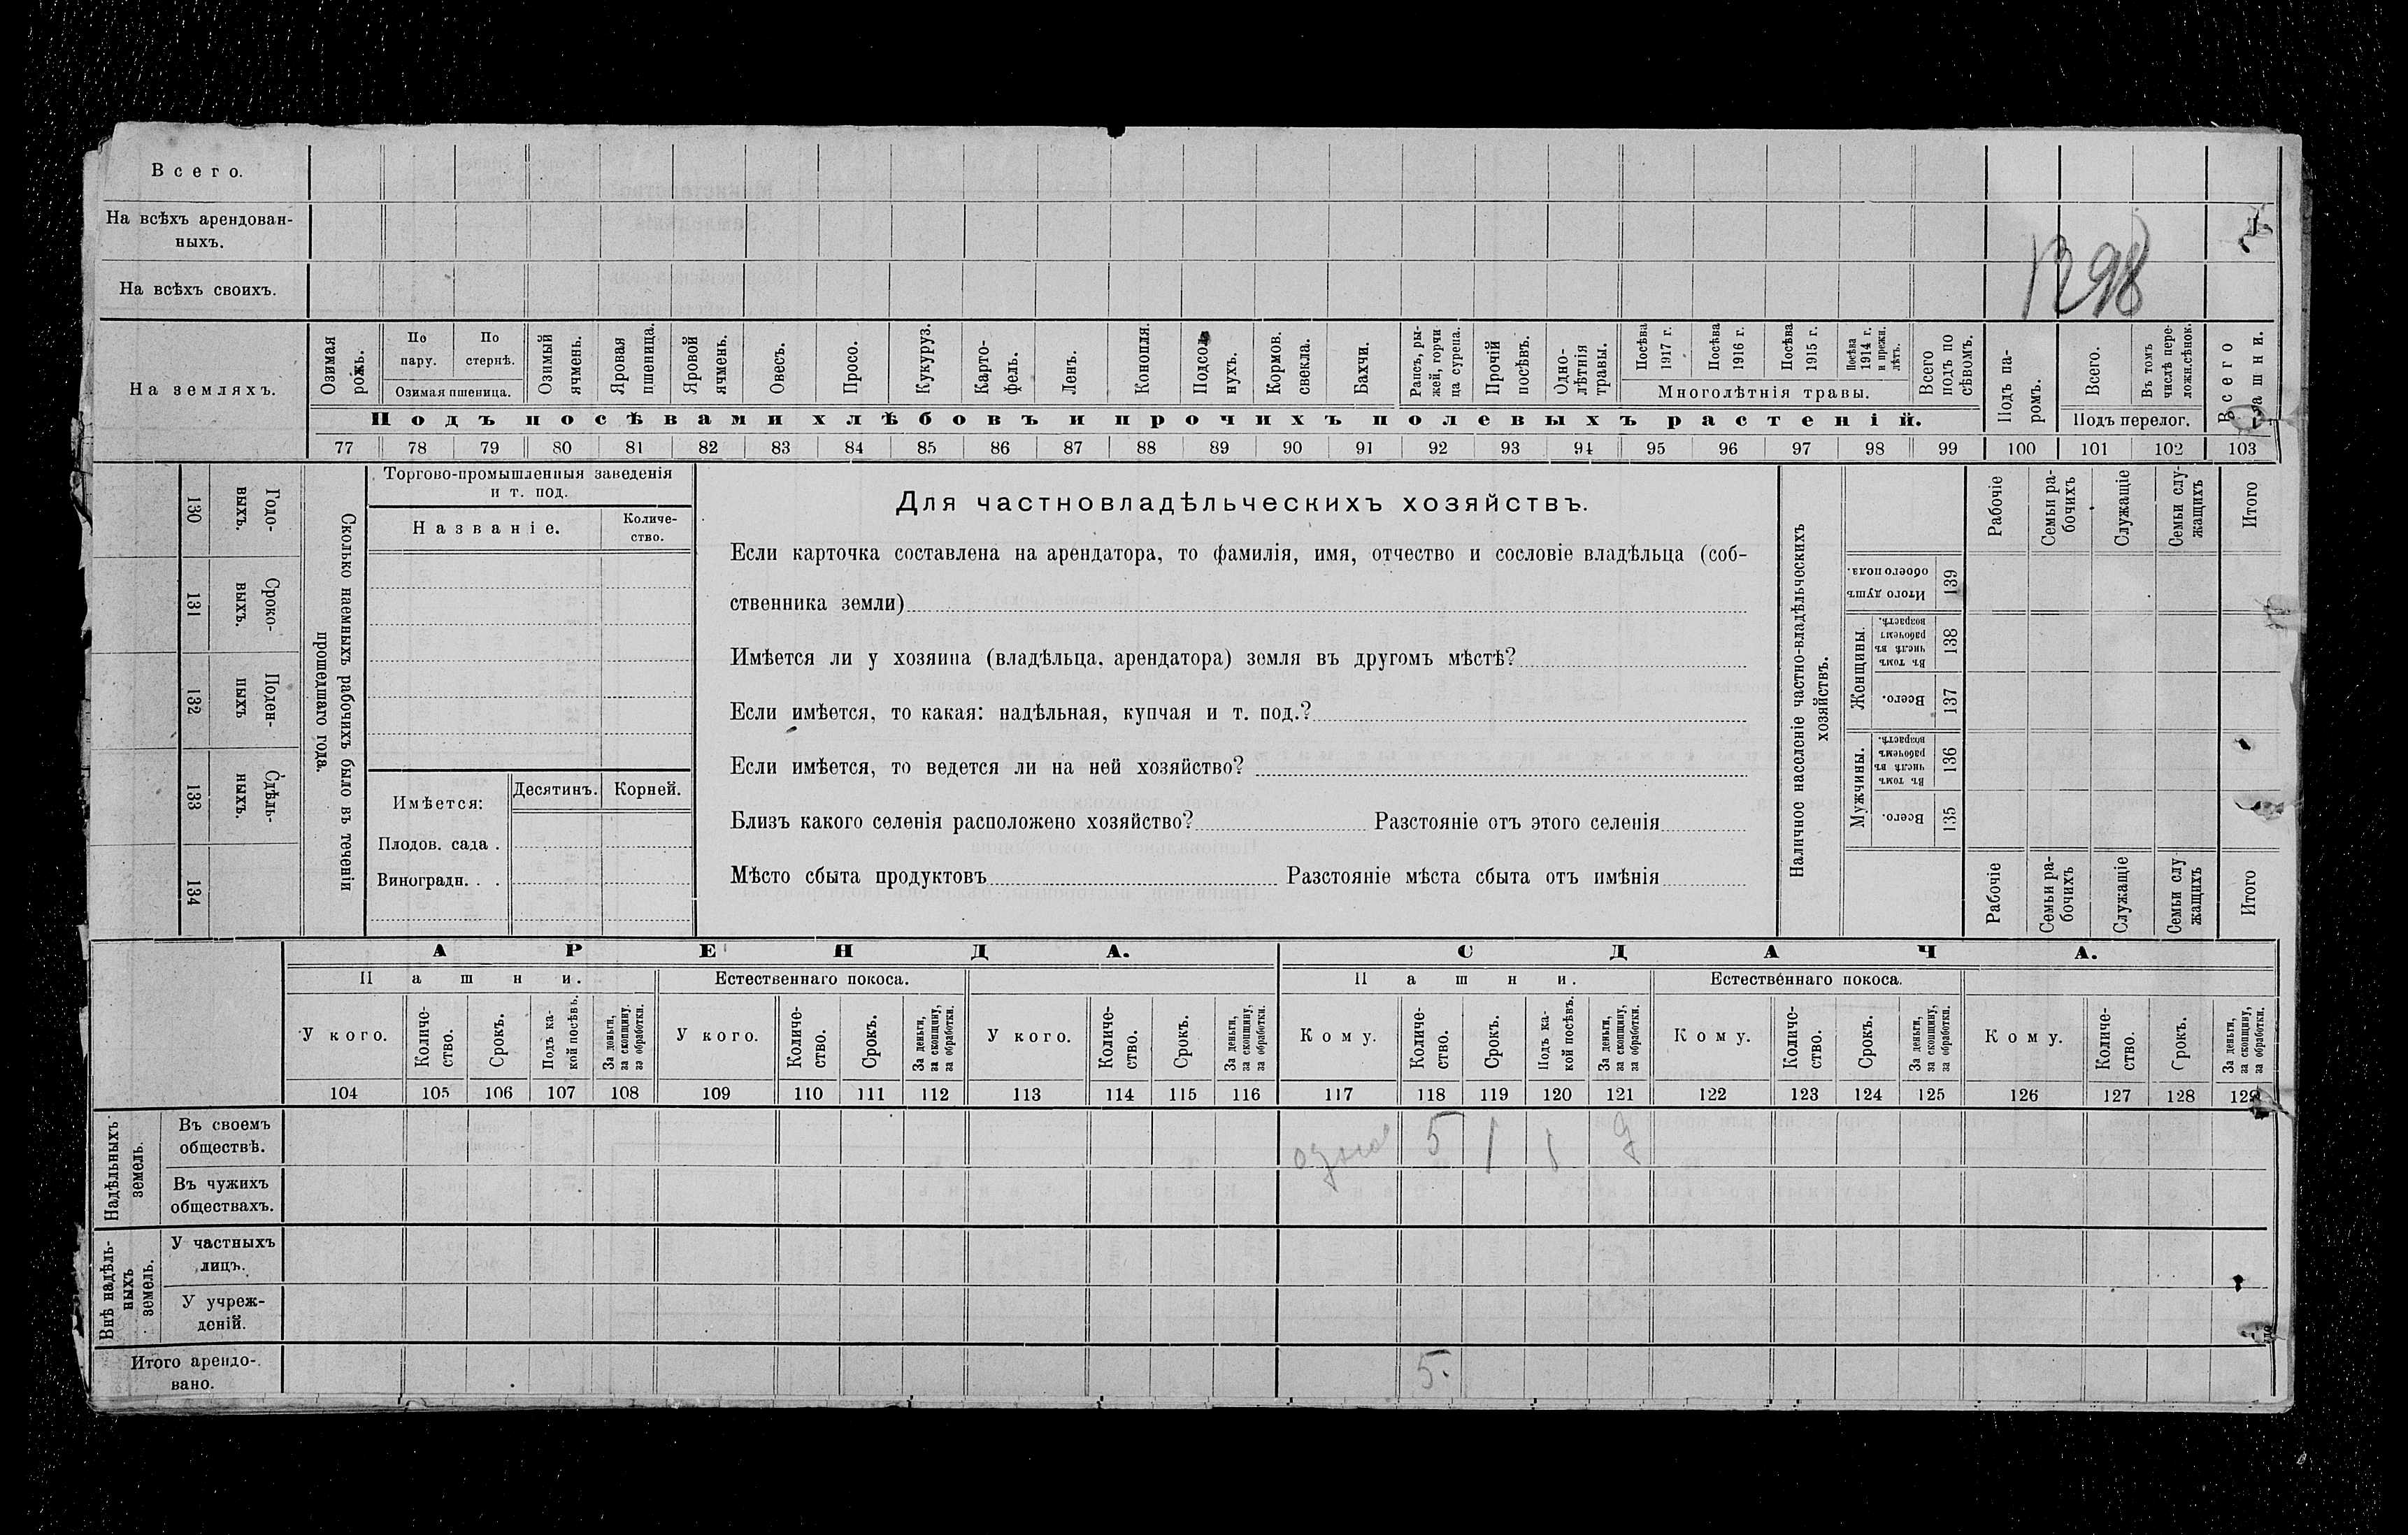 Всего.
На всѣхъ арендован-
ныхъ.
1298
На всѣхъ своихъ.
На земляхъ.
Озимая рожь.
По пару.
По стернѣ.
Озимая пшеница.
Озимый ячмень.
Яровая пшеница.
Яровой ячмень.
Овесъ.
Просо.
Кукуруз.
Карто-
фель.
Ленъ.
Конопля.
Подсол
нухъ.
Кормов.
свекла.
Бахчи.
Рапсъ, ры-
жей, горчи
ца сурепа.
Прочій
посѣвъ.
Одно-
лѣтнія
травы.
Посѣва
1917 г.
Посѣва
1916 г.
Посѣва
1915 г.
Посѣва
1914 г.
и прежн.
лѣтъ.
Многолѣтнія травы.
Всего
подъ по
сѣвомъ.
Подъ па-
ромъ.
Всего.
Въ томъ
числѣ пере-
ложн.сѣнок.
Подъ перелог.
Всего
пашни.
Подъ посѣвами хлѣбовъ и прочихъ полевыхъ растеній.
77 78 79 80 81 82 83 84 85 86 87 88 89 90 91 92 93 94 95 96 97 98 99 100 101 102 103
130
Годо-
выхъ.
131
Сроко-
выхъ.
132
Поден-
ныхъ
133
Сдѣль-
ныхъ.
134
Сколько наемныхъ рабочихъ было въ теченіи
прошедшаго года.
Торгово-промышленныя заведенія
и т. под.
Названіе.
Количе-
ство.
Имѣется:
Десятинъ.
Корней.
Плодов. сада .
Виноградн. . .
Для частновладѣльческихъ хозяйствъ.
Если карточка составлена на арендатора, то фамилія, имя, отчество и сословіе владѣльца (соб-
ственника земли)
Имѣется ли у хозяина (владѣльца, арендатора) земля въ другомъ мѣстѣ?
Если имѣется, то какая: надѣльная, купчая и т. под.?
Если имѣется, то ведется ли на ней хозяйство?
Близъ какого селенія расположено хозяйство? Разстояніе отъ этого селенія
Мѣсто сбыта продуктовъ Разстояніе мѣста сбыта отъ имѣнія
Наличное населеніе частно-владѣльческихъ
хозяйствъ.
Рабочіе
Семьи ра-
бочихъ
Служащіе
Семьи слу-
жащихъ
Итого
Итого душъ
обоего пола.
139
Женщины.
Въ томъ
числѣ въ
рабочемъ
возрастѣ.
138
Всего.
137
Мужчины.
Въ томъ
числѣ въ
рабочемъ
возрастѣ.
136
Всего.
135
Рабочіе
Семьи ра-
бочихъ
Служащіе
Семьи слу
жащихъ
Итого
АРЕНДА.
СДАЧА.
Пашни.
Естественнаго покоса.
Пашни.
Естественнаго покоса.
У кого.
Количе-
ство.
Срокъ.
Подъ ка-
кой посѣвъ.
За деньги,
за скопщину,
за обработки.
У кого.
Количе-
ство.
Срокъ.
За деньги,
за скопщину,
за обработки.
У кого.
Количе-
ство.
Срокъ.
За деньги,
за скопщину,
за обработки.
Кому.
Количе-
ство.
Срокъ.
Подъ ка-
кой посѣвъ.
За деньги,
за скопщину,
за обработки.
Кому.
Количе-
ство.
Срокъ.
За деньги,
за скопщину,
за обработки.
Кому.
Количе-
ство.
Срокъ.
За деньги,
за скопщину,
за обработки.
104 105 106 107 108 109 110 111 112 113 114 115 116 117 118 119 120 121 122 123 124 125 126 127 128 129
Надѣльныхъ
земель.
Въ своемъ
обществѣ.
5 1
Въ чужихъ
обществахъ.
Внѣ надѣль-
ныхъ
земель.
У частныхъ
лицъ.
У учреж-
деній.
Итого арендо-
вано.
5.